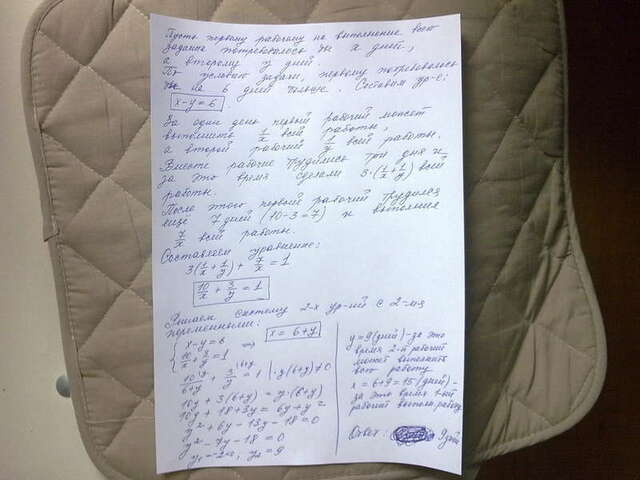 Пусть первому рабочему на выполнение всего
задания потребовалось бы x дней,
а второму y дней.
По условию задачи, первому потребовалось
бы на 6 дней больше. Составим ур-е:
x-y=6
За один день первый рабочий может
выполнить 1/x всей работы,
а второй рабочий 1/y всей работы.
Вместе рабочие трудились три дня и
за это время сделали 3·(1/x+1/y) всей
работы.
После этого первый рабочий трудился
еще 7 дней (10-3=7) и выполнил
7/x всей работы.
Составляем уравнение:
3(1/x+1/y)+7/x=1
10/x+3/y=1
Решаем систему 2-х ур-ий с 2-мя
переменными:
{ x-y=6 => x=6+y
10/x+3/y=1
10/(6+y)+3/y=1 |·y(6+y)≠0
10y+3(6+y)=y·(6+y)
10y+18+3y=6y+y²
y²+6y-13y-18=0
y²-7y-18=0
y₁=-2, y₂=9
y=9(дней)-за это
время 2-й рабочий
может выполнить
всю работу
x=6+9=15(дней)-
за это время 1-ый
рабочий выполн. работу
Ответ: 9 дней